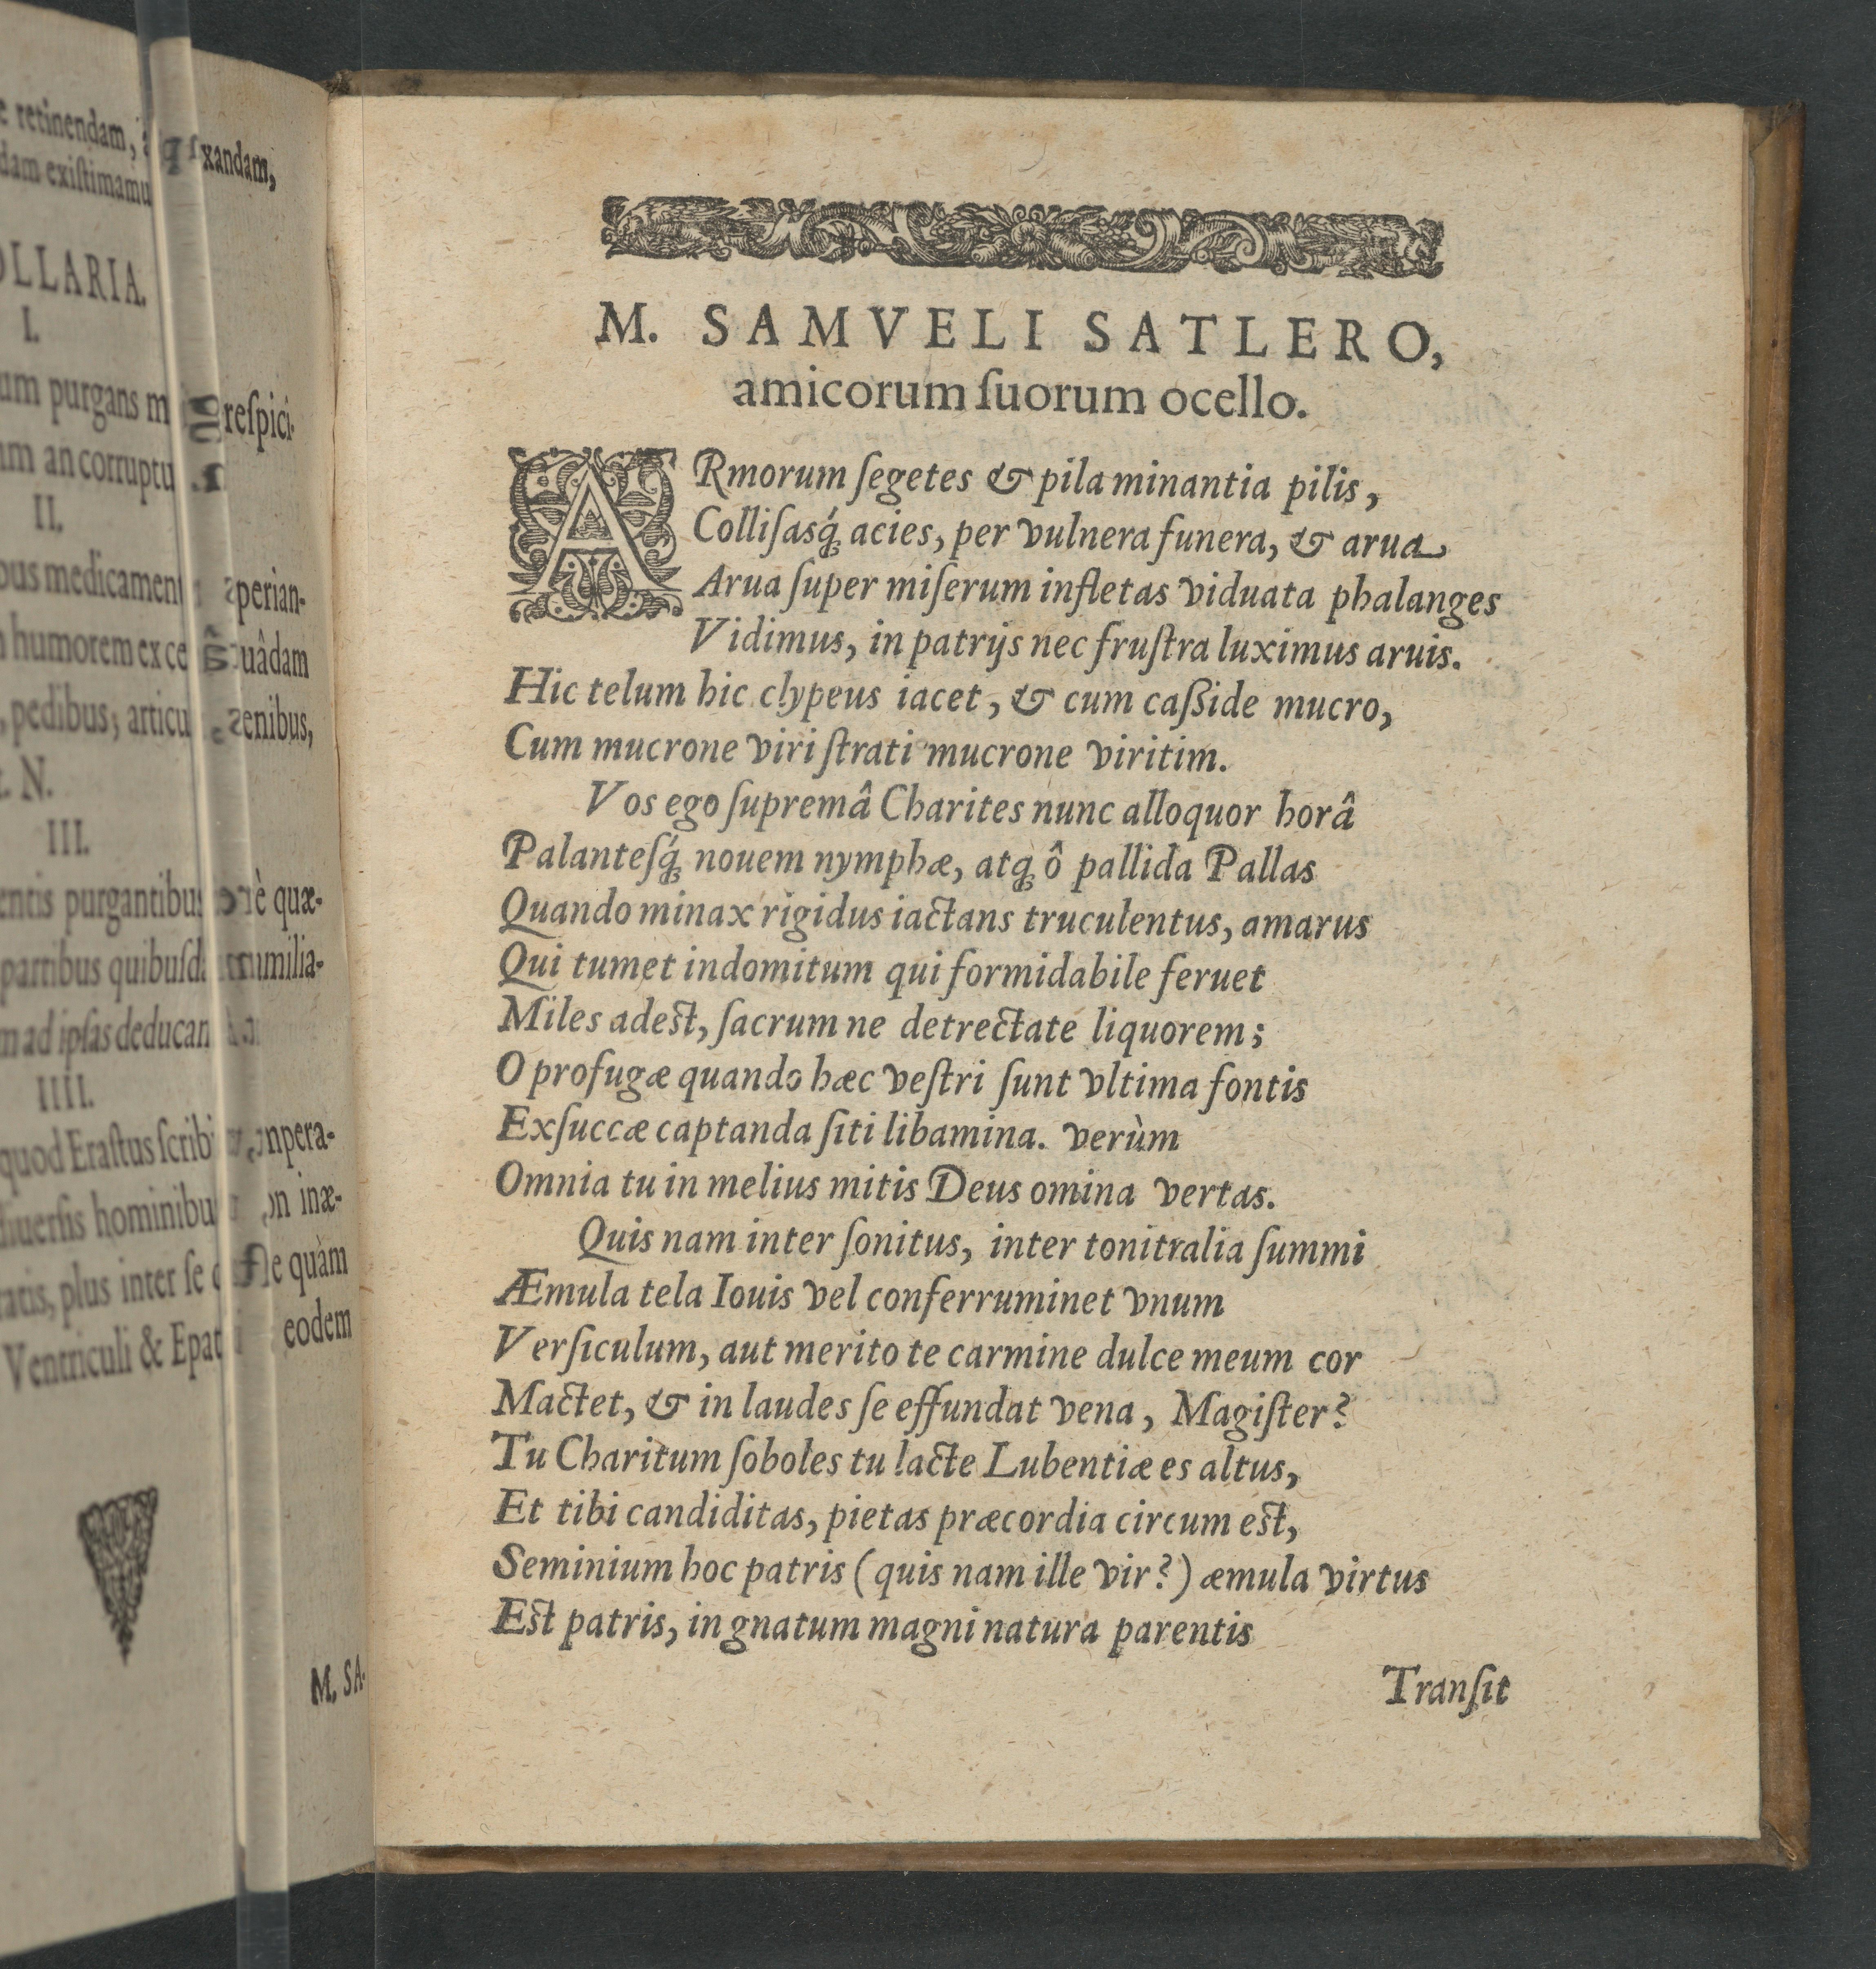 e retinendam,
xandam,
dam exiſtimamu
OLLARIA.
I.
um purgans m
reſpici-
um an corruptu
II.
bus medicament
perian-
humorem ex ce
uâdam
, pedibus, articu
enibus,
t. N.
III.
entis purgantibus
è quæ-
partibus quibuſd
umilia-
m ad ipſas deducan
IIII.
quod Eraſtus ſcrib
npera-
diuerſis hominibu
on inæ-
ratis, plus inter ſe
e quàm
Ventriculi & Epat
eodem
M. SA-
M. SAMVELI SATLERO,
amicorum ſuorum ocello.
ARmorum ſegetes & pila minantia pilis,
Colliſasq́; acies, per vulnera funera, & arua
Arua ſuper miſerum infletas viduata phalanges
Vidimus, in patrijs nec fruſtra luximus aruis.
Hic telum hic clypeus iacet, & cum caßide mucro,
Cum mucrone viri ſtrati mucrone viritim.
Vos ego ſupremâ Charites nunc alloquor horâ
Palanteſq́; nouem nymphæ, atq; ô pallida Pallas
Quando minax rigidus iactans truculentus, amarus
Qui tumet indomitum qui formidabile feruet
Miles adest, ſacrum ne detrectate liquorem;
O profugæ quando hæc veſtri ſunt vltima fontis
Exſuccæ captanda ſiti libamina. verùm
Omnia tu in melius mitis Deus omina vertas.
Quis nam inter ſonitus, inter tonitralia ſummi
Æmula tela Iouis vel conferruminet vnum
Verſiculum, aut merito te carmine dulce meum cor
Mactet, & in laudes ſe effundat vena, Magiſter?
Tu Charitum ſoboles tu lacte Lubentiæ es altus,
Et tibi candiditas, pietas præcordia circum est,
Seminium hoc patris (quis nam ille vir?) æmula virtus
Est patris, in gnatum magni natura parentis
Tranſit